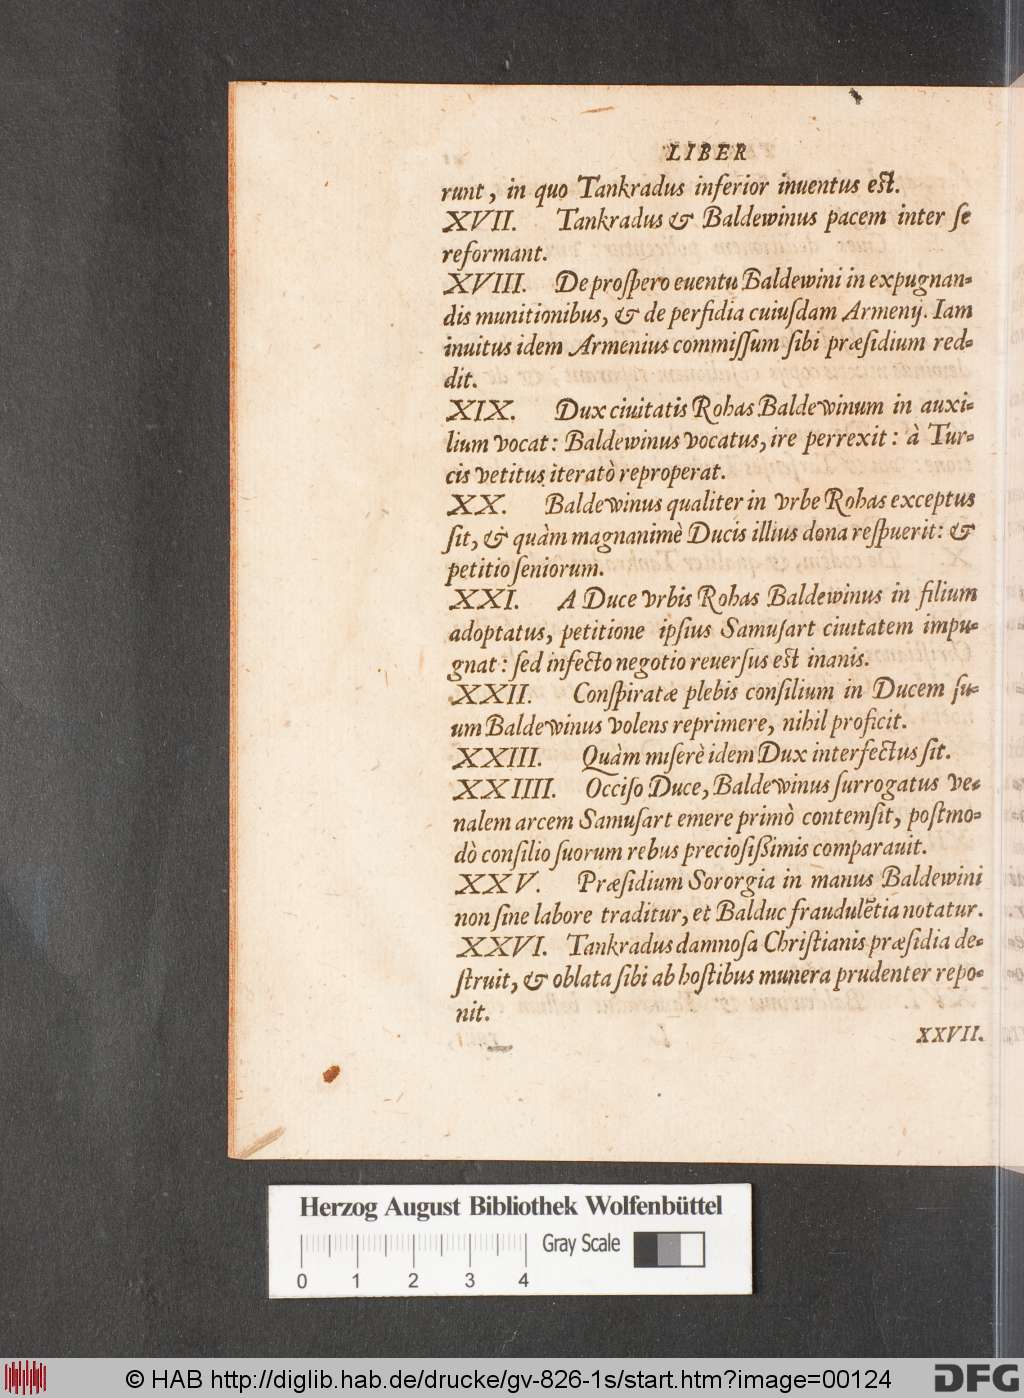 LIBER
runt, in quo Tankradus inferior inuentus est.
XVII. Tankradus & Baldewinus pacem inter ſe
reformant.
XVIII. De proſpero euentu Baldewini in expugnan-
dis munitionibus, & de perfidia cuiuſdam Armenij. Iam
inuitus idem Armenius commiſſum ſibi præſidium red-
dit.
XIX. Dux ciuitatis Rohas Baldewinum in auxi-
lium vocat: Baldewinus vocatus, ire perrexit: à Tur-
cis vetitus iteratò reproperat.
XX. Baldewinus qualiter in vrbe Rohas exceptus
ſit, & quàm magnanimè Ducis illius dona reſpuerit: &
petitio ſeniorum.
XXI. A Duce vrbis Rohas Baldewinus in filium
adoptatus, petitione ipſius Samuſart ciuitatem impu-
gnat: ſed infecto negotio reuerſus est inanis.
XXII. Conſpiratæ plebis conſilium in Ducem ſu-
um Baldewinus volens reprimere, nihil proficit.
XXIII. Quàm miſerè idem Dux interfectus ſit.
XXIIII. Occiſo Duce, Baldewinus ſurrogatus ve-
nalem arcem Samuſart emere primò contemſit, poſtmo-
dò conſilio ſuorum rebus precioſißimis comparauit.
XXV. Præſidium Sororgia in manus Baldewini
non ſine labore traditur, et Balduc fraudulẽtia notatur.
XXVI. Tankradus damnoſa Chriſtianis præſidia de-
ſtruit, & oblata ſibi ab hoſtibus munera prudenter repo-
nit.
XXVII.
Herzog August Bibliothek Wolfenbüttel
Gray Scale
0 1 2 3 4
© HAB http://diglib.hab.de/drucke/gv-826-1s/start.htm?image=00124
DFG